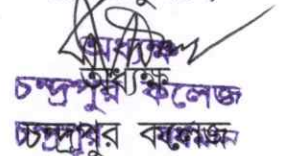 অধ্যক্ষ
অধ্যক্ষ
চন্দ্রপুর কলেজ
চন্দ্রপুর কলেজ